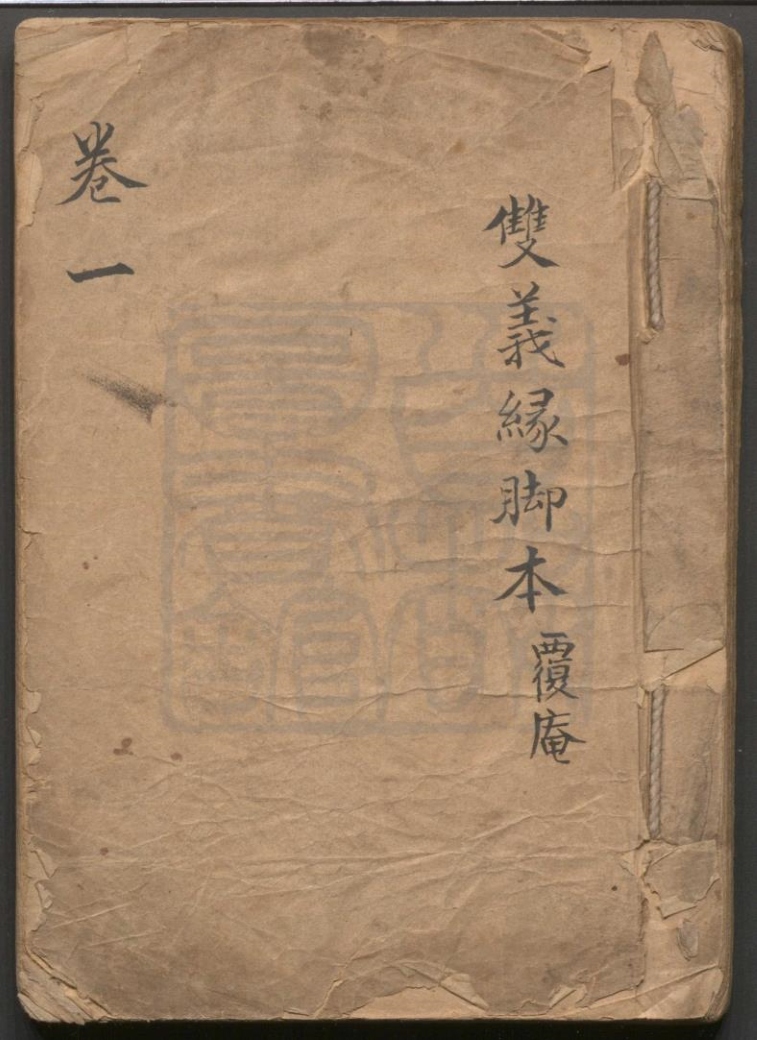 雙義緣脚本
覆庵
卷一